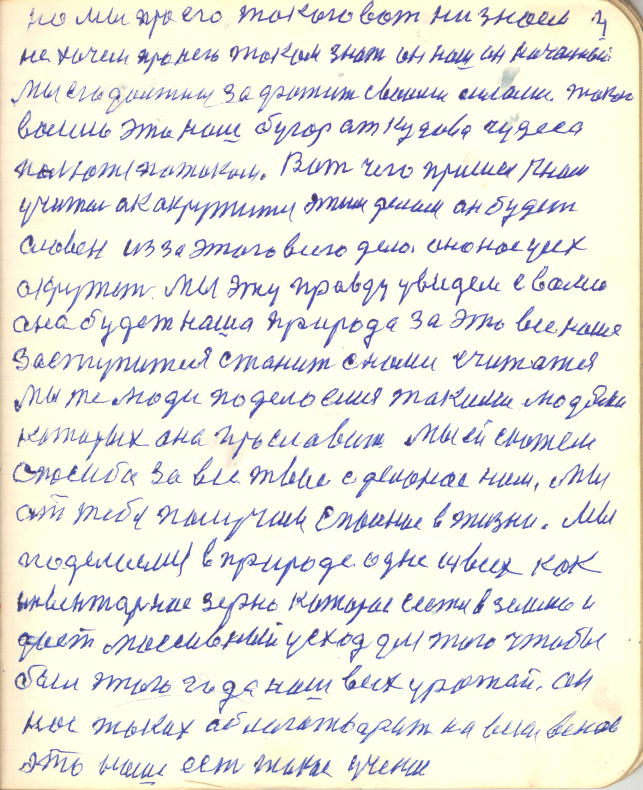 но мы про его такого вот ни знаем 4
не хочем про него таком знат он наш он
мы его должны задражит своими силами. такого
вашиго это наш бугор аткудова чудеса
потоком. Вот чего пришел к нам
учител ак акружити этим делам он будет
словен из за этого всего дела. он нас усех
акружет. Мы эту правду увидем с вами
она будет наша природа за это все наше
заступится станит с нами считатся
мы же люди поделаемся такими людями
которых она прославит мы ей скажем
спосиба за все твое сделоное нам, мы
от тебя получили в жизни. Мы
поделаемся в природе одне из всех как
инвентарное зерно каторое сеется в землю и
дает массивный усход для этого чтобы
был этого года наш всех урожай. он
нас таких облагатварит на веки веков
это наше ест такое учение